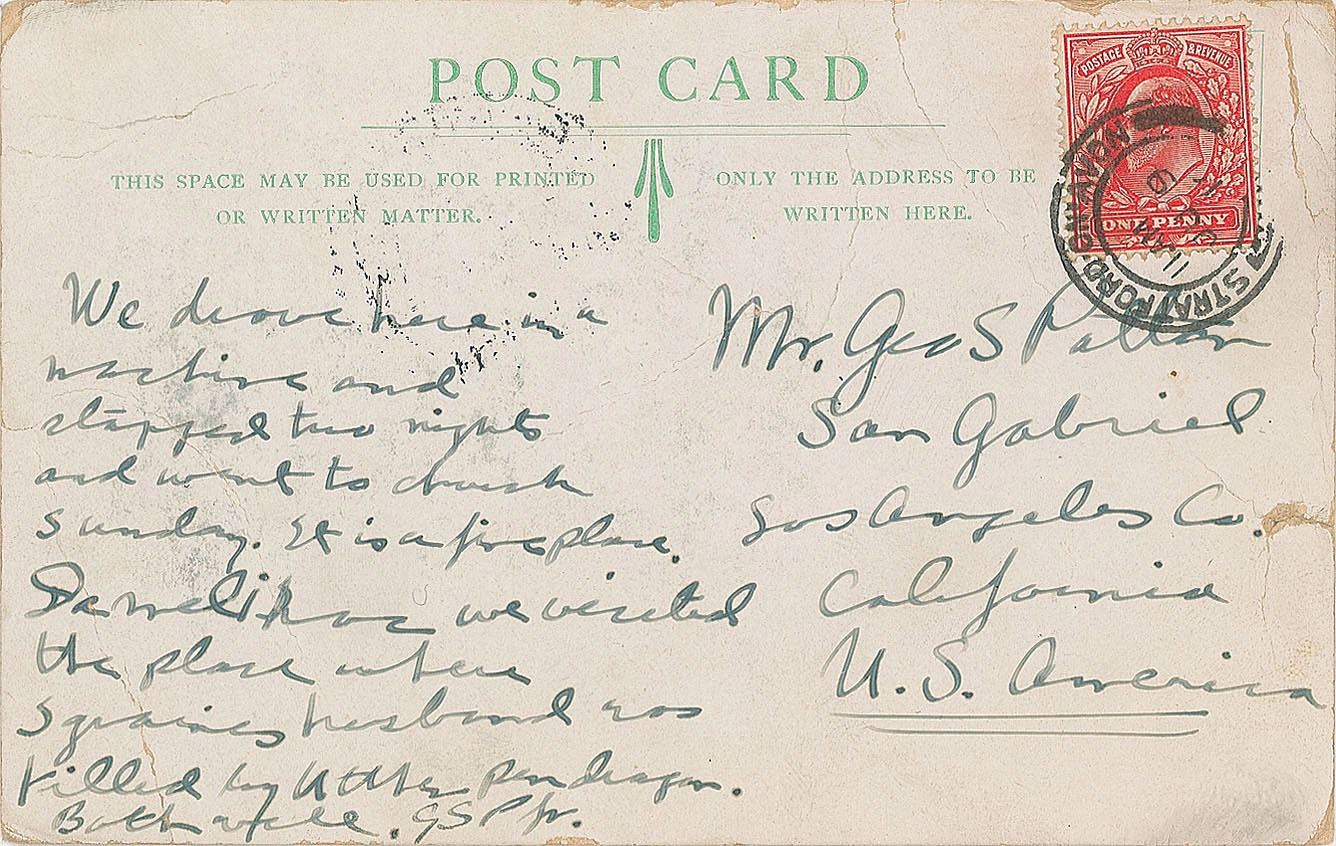 POST CARD
THIS SPACE MAY BE USED FOR PRINTED
OR WRITTEN MATTER.
ONLY THE ADDRESS TO BE
WRITTEN HERE.
POSTAGE & REVENUE
ONE PENNY
STRATFORD-ON-AVON
We drove here in a
machine and
stopped two nights
and went to church
Sunday. It is a fine place.
we visited
the place where
Igraines husband was
killed by Uther pendragon.
Both well. GSP Jr.
Mr. Geo S Patton
San Gabriel
Los Angeles Co.
California
U.S. America